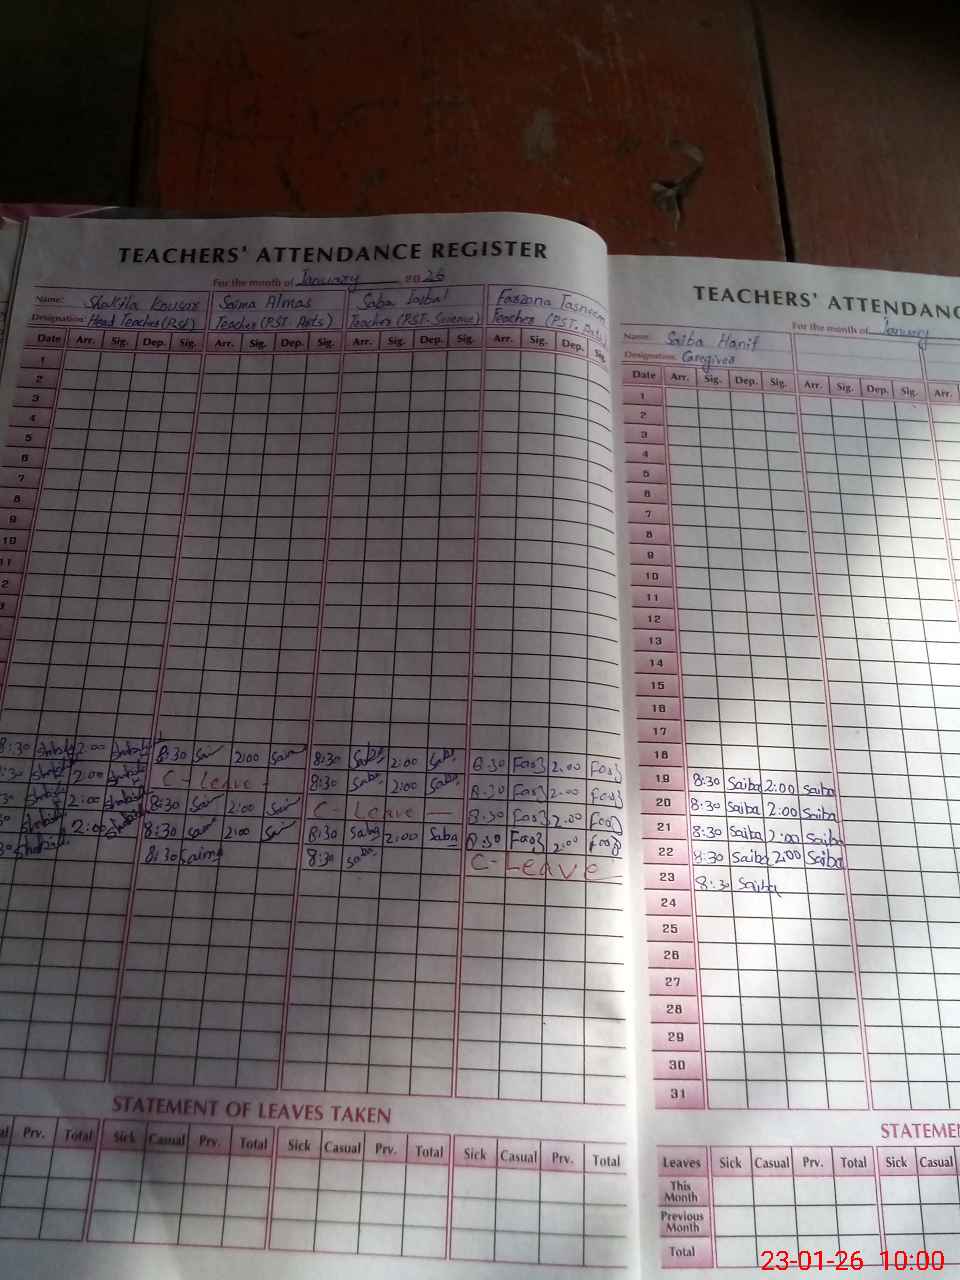 TEACHERS' ATTENDANCE REGISTER
For the month of January 2026
Name: Shakila Kousar Saima Almas Saba Iqbal Farzana Tasneem
Designation: Head Teacher (PST) Teacher (PST Arts) Teacher (PST-Science) Teacher (PST-Arts)
Date Arr. Sig. Dep. Sig. Arr. Sig. Dep. Sig. Arr. Sig. Dep. Sig. Arr. Sig. Dep. Sig.
1
2
3
4
5
6
7
8
9
10
11
8:30 2:00 8:30 2:00 8:30 Saba 2:00 Saba 8:30 2:00
:30 2:00 C-Leave 8:30 Saba 2:00 Saba 8:30 2:00
2:00 8:30 2:00 C-Leave 8:30 2:00
2:00 8:30 2:00 8:30 Saba 2:00 Saba 8:30 2:00
8:30 Saima 8:30 Saba C-Leave
STATEMENT OF LEAVES TAKEN
Prv. Total Sick Casual Prv. Total Sick Casual Prv. Total Sick Casual Prv. Total
TEACHERS' ATTENDANC
For the month of January
Name: Saiba Hanif
Designation: Caregiver
Date Arr. Sig. Dep. Sig. Arr. Sig. Dep. Sig. Arr.
1
2
3
4
5
6
7
8
9
10
11
12
13
14
15
16
17
18
19 8:30 Saiba 2:00 Saiba
20 8:30 Saiba 2:00 Saiba
21 8:30 Saiba 2:00 Saiba
22 8:30 Saiba 2:00 Saiba
23 8:30 Saiba
24
25
26
27
28
29
30
31
STATEMEN
Leaves Sick Casual Prv. Total Sick Casual
This Month
Previous Month
Total
23-01-26 10:00